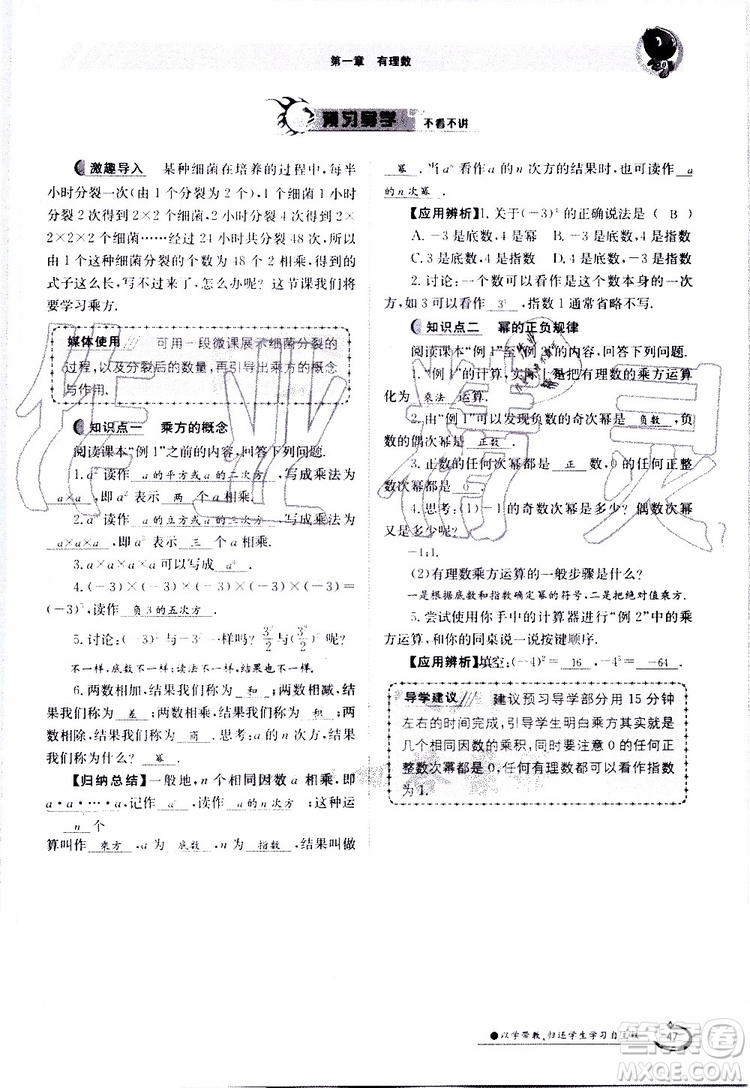 第一章　有理数
预习导学　不看不讲
激趣导入　某种细菌在培养的过程中,每半
小时分裂一次(由1个分裂为2个),1个小时
分裂2次得到2×2个细菌,1.5小时得到2×
2×2个细菌……经过24小时共分裂48次,所以
由1个细菌可分裂的个数为48个2相乘,得到的
式子这么长,写不过来,怎么办呢?这节课我们将
要学习乘方.
媒体使用　可用一段微课展示细菌分裂的
过程,以及分裂后的数量,再引导出乘方的概念
与作用.
知识点一　乘方的概念
阅读课本“例1”之前的内容,回答下列问题.
1.a²读作 a的平方或a的二次方,写成乘法为
a×a,即a²表示 两 个a相乘.
2.a³读作 a的立方或a的三次方,写成乘法为
a×a×a,即a³表示 三 个a相乘.
3.a×a×a×a×a记作 a⁵.
4.(-3)×(-3)×(-3)×(-3)×(-3)记作
(-3)⁵,读作 负3的五次方.
不一样,底数不一样;读法不一样,结果也不一样.
6.两数相加,结果我们称为 和;两数相减,结
果我们称为 差;两数相乘,结果我们称为 积;两
数相除,结果我们称为 商.思考:乘方的结果我们
称为什么? 幂
【归纳总结】一般地,n个相同因数a相乘,即
a·a·…·a,记作 aⁿ,读作 a的n次方,这种运
n个
算叫作 乘方,a为 底数,n为 指数,结果叫做
幂.当aⁿ看作a的n次方的结果时,也可读作 a
的n次幂.
A.-3是底数,2是幂　B.-3是底数,2是指数
C.3是底数,2是幂　D.3是底数,2是指数
2.讨论:一个数可以看作这个数本身的一次
方,如3可以看作 3¹,指数1通常省略不写.
知识点二　幂的正负规律
阅读课本“例1”至“例2”的内容,回答下列问题.
1.“例1”的计算,实际上是把有理数的乘方运算
化为 乘法 运算.
2.由“例1”可以发现负数的奇次幂是 负数,负
数的偶次幂是 正数.
3.正数的任何次幂都是 正数,0的任何正整
数次幂都是 0.
4.思考:(1)-1的奇数次幂是多少?偶数次幂
是多少呢?
-1;1.
(2)有理数乘方运算的一般步骤是什么?
一是根据底数和指数确定幂的符号,二是把绝对值乘方.
5.尝试使用你手中的计算器进行“例2”中的乘
方运算,和你的同桌说一说按键顺序.
【应用辨析】填空:(-4)²= 16,-4³= -64.
导学建议　建议预习导学部分用15分钟
左右的时间完成,引导学生明白乘方其实就是
几个相同因数的乘积,同时要注意0的任何正
整数次幂都是0,任何数都可以看作指数
为1.
以学带教,归还学生学习自主权
47